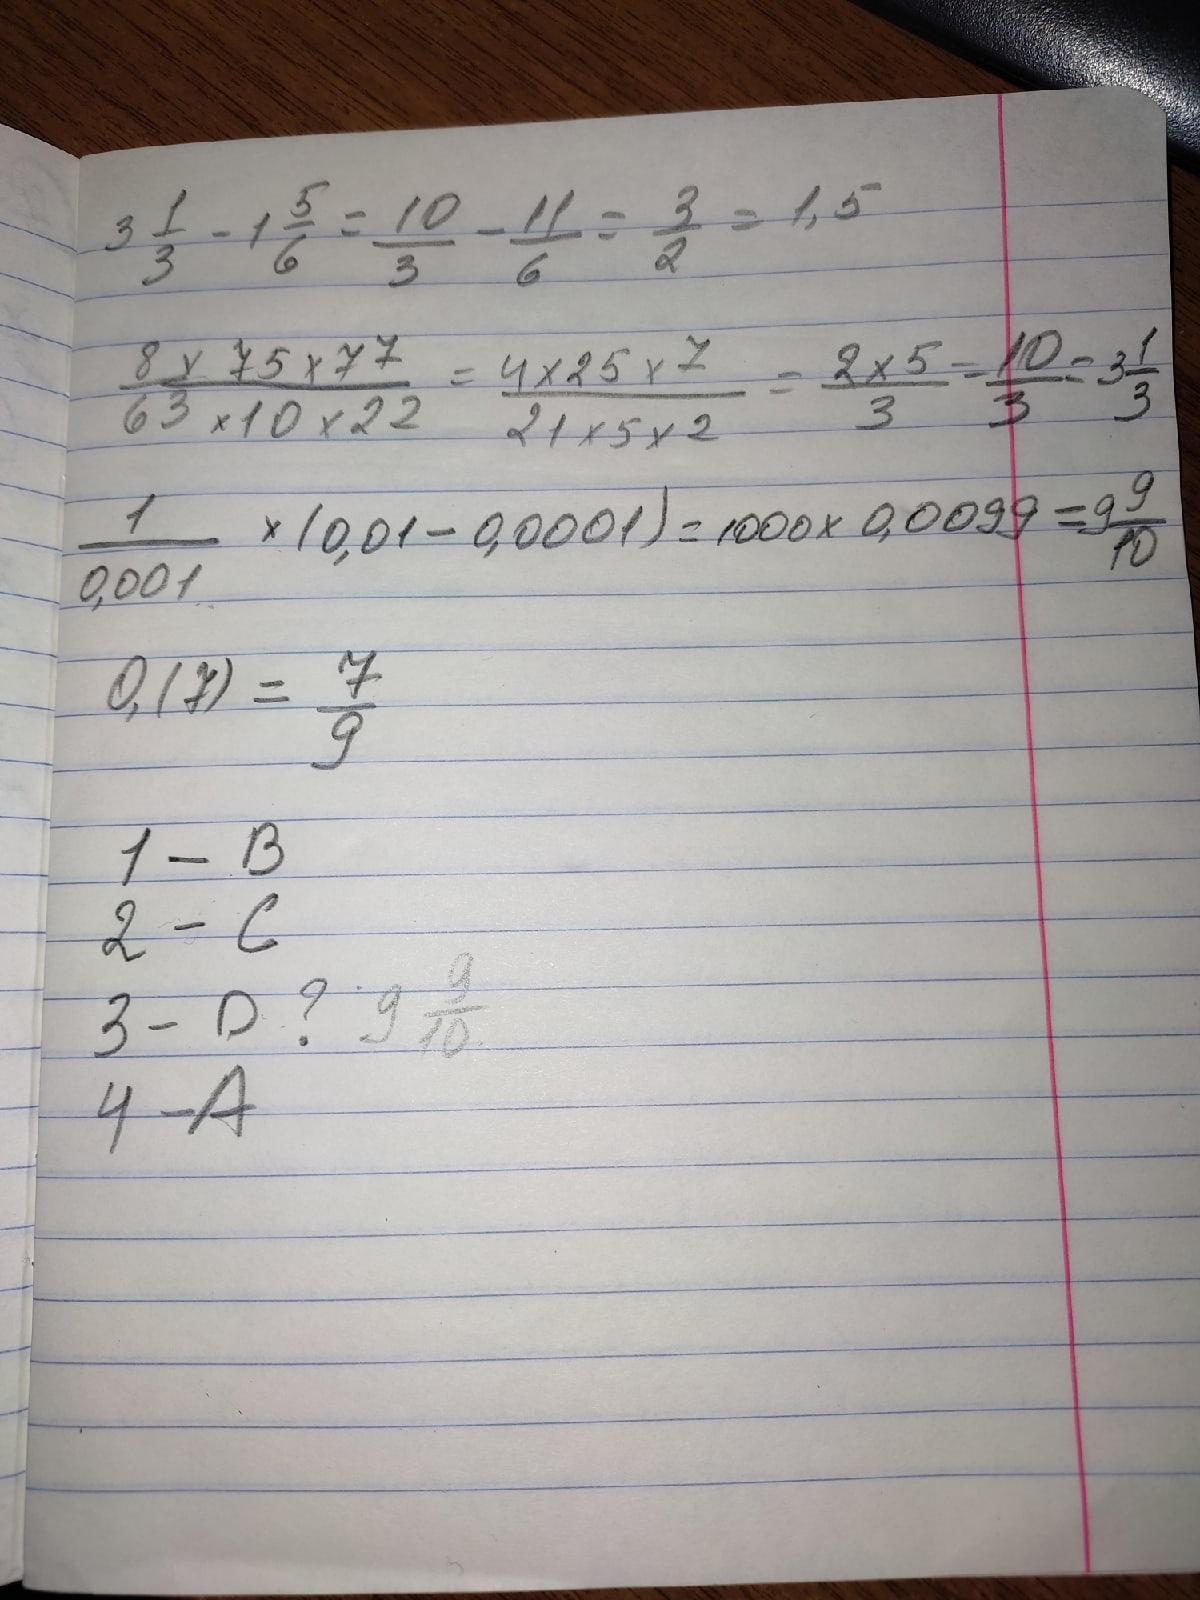 3 1/3 - 1 5/6 = 10/3 - 11/6 = 3/2 = 1,5
8 x 75 x 77 / 63 x 10 x 22 = 4 x 25 x 7 / 21 x 5 x 2 = 2 x 5 / 3 = 10/3 = 3 1/3
1/0,001 x (0,01 - 0,0001) = 1000 x 0,0099 = 9 9/10
0,(7) = 7/9
1 - B
2 - C
3 - D ? 9 9/10
4 - A